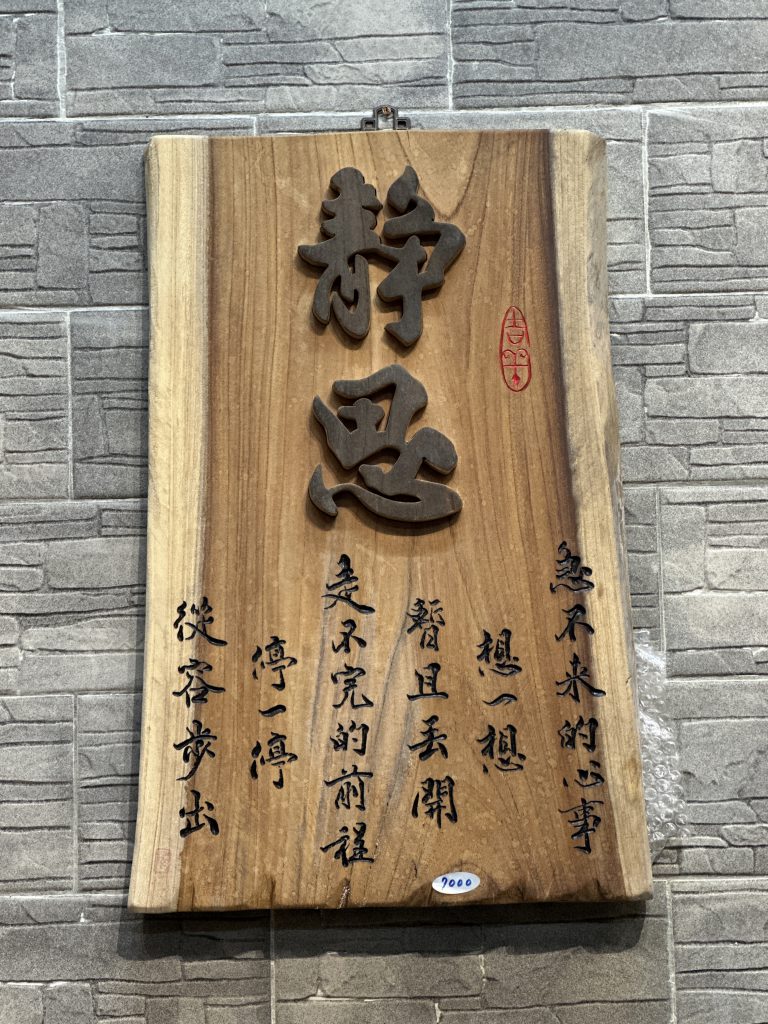 靜思
急不来的心事
想一想
暫且丟開
走不完的前程
停一停
從容步出
7000